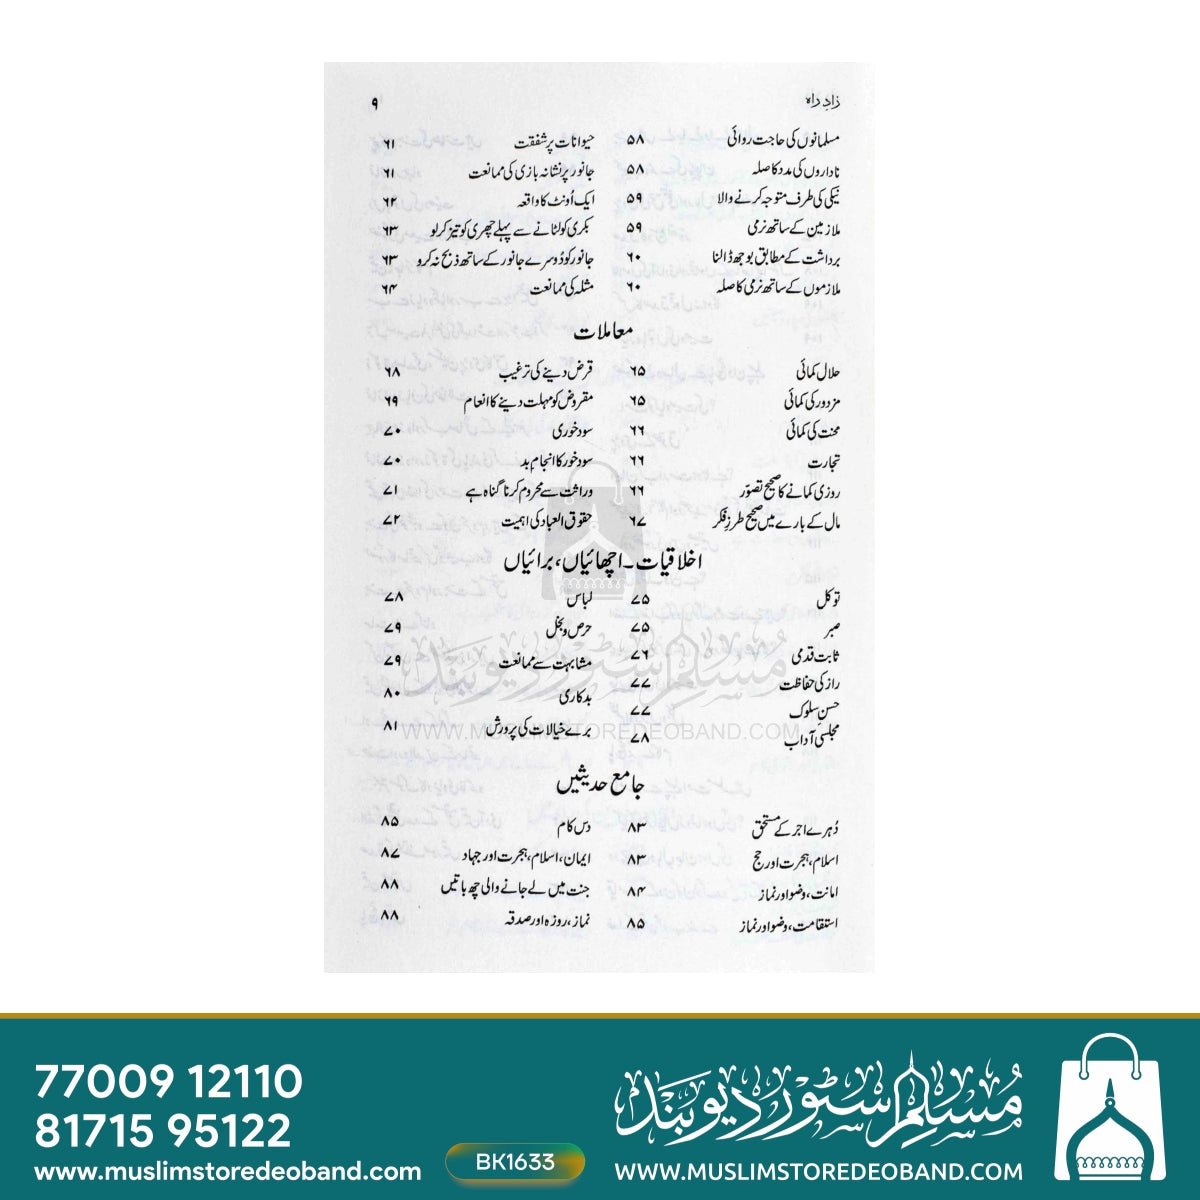 زادِ راہ ۹
مسلمانوں کی حاجت روائی ۵۸
ناداروں کی مدد کا صلہ ۵۸
نیکی کی طرف متوجہ کرنے والا ۵۹
ملازمین کے ساتھ نرمی ۵۹
برداشت کے مطابق بوجھ ڈالنا ۶۰
ملازموں کے ساتھ نرمی کا صلہ ۶۰
حیوانات پر شفقت ۶۱
جانور پر نشانہ بازی کی ممانعت ۶۱
ایک اُونٹ کا واقعہ ۶۲
بکری کو لٹانے سے پہلے چھری کو تیز کر لو ۶۳
جانور کو دُوسرے جانور کے ساتھ ذبح نہ کرو ۶۳
مثلہ کی ممانعت ۶۴
معاملات
حلال کمائی ۶۵
مزدور کی کمائی ۶۵
محنت کی کمائی ۶۶
تجارت ۶۶
روزی کمانے کا صحیح تصوّر ۶۶
مال کے بارے میں صحیح طرزِ فکر ۶۷
قرض دینے کی ترغیب ۶۸
مقروض کو مہلت دینے کا انعام ۶۹
سود خوری ۷۰
سود خور کا انجامِ بد ۷۰
وراثت سے محروم کرنا گناہ ہے ۷۱
حقوق العباد کی اہمیت ۷۲
اخلاقیات۔ اچھائیاں، برائیاں
توکل ۷۵
صبر ۷۵
ثابت قدمی ۷۶
راز کی حفاظت ۷۷
حسنِ سلوک ۷۷
مجلسی آداب ۷۸
لباس ۷۸
حرص و بخل ۷۹
مشابہت سے ممانعت ۷۹
بدکاری ۸۰
برے خیالات کی پرورش ۸۱
جامع حدیثیں
دُہرے اجر کے مستحق ۸۳
اسلام، ہجرت اور حج ۸۳
امانت، وضو اور نماز ۸۴
استقامت، وضو اور نماز ۸۵
دس کام ۸۵
ایمان، اسلام، ہجرت اور جہاد ۸۷
جنت میں لے جانے والی چھ باتیں ۸۸
نماز، روزہ اور صدقہ ۸۸
مسلم سٹور دیوبند
WWW.MUSLIMSTOREDEOBAND.COM
77009 12110
81715 95122
www.muslimstoredeoband.com
BK1633
مسلم سٹور دیوبند
WWW.MUSLIMSTOREDEOBAND.COM